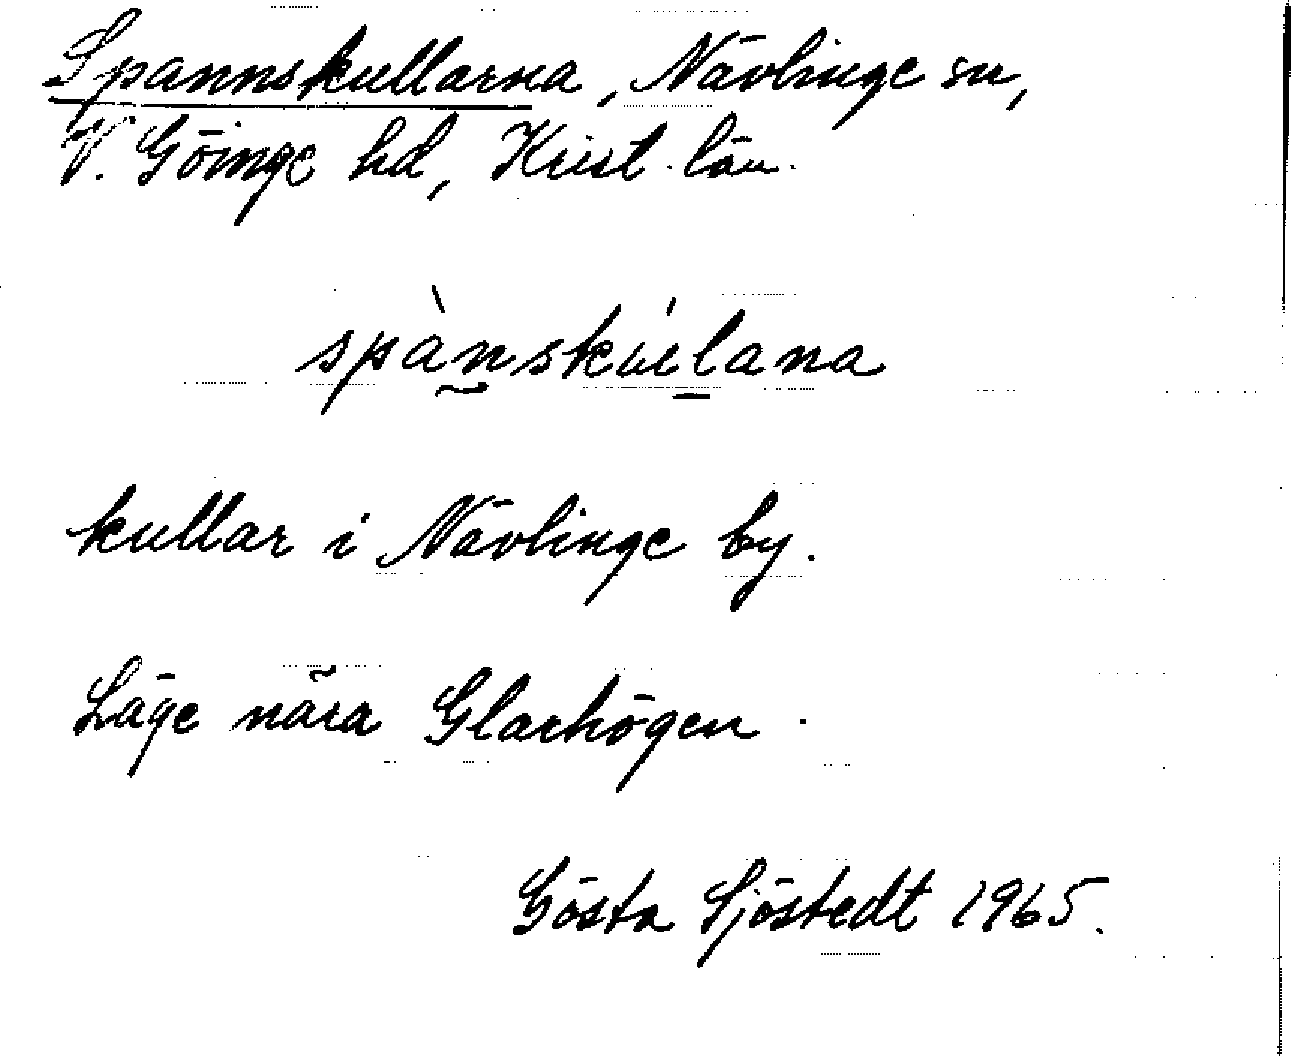 Spannskullarna, Nävlinge sn,
V. Göinge hd, Krist. län.
spànskúlana
kullar i Nävlinge by.
Läge nära Glarhögen.
Gösta Sjöstedt 1965.